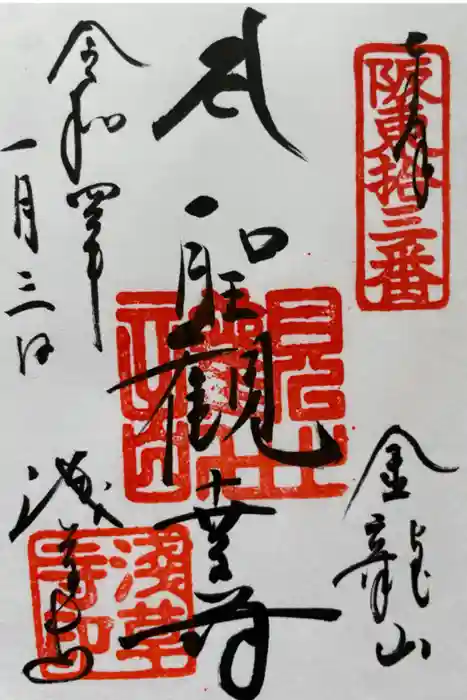 奉拝
阪東拾三番
金龍山
聖観世音
浅草寺
浅草寺印
令和四年
一月三日